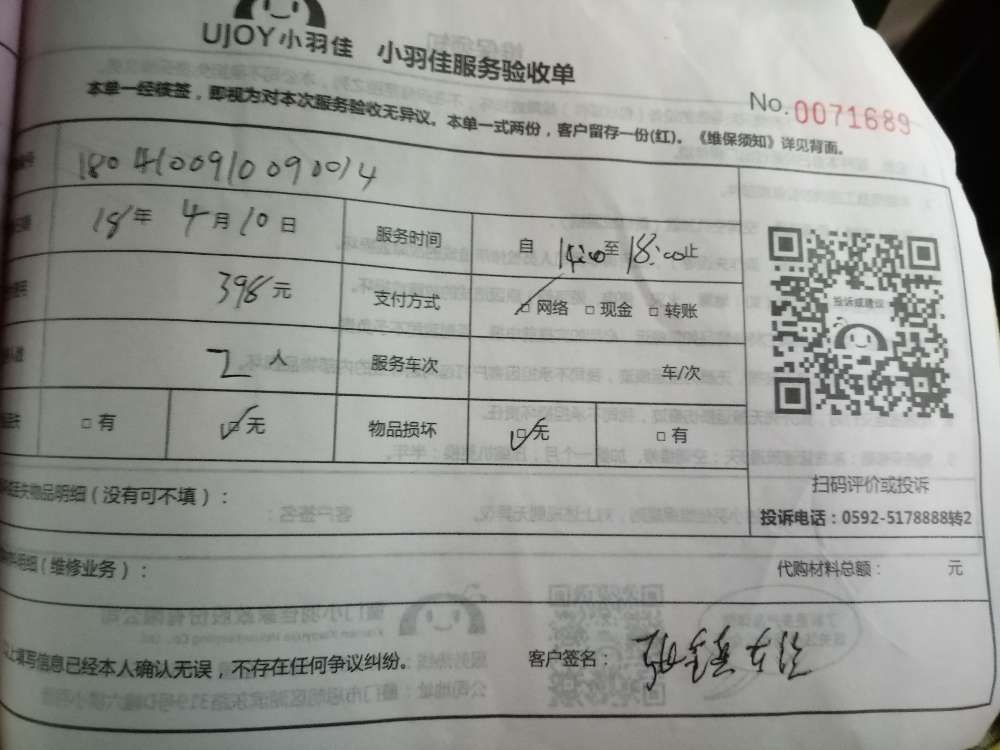 UJOY小羽佳 小羽佳服务验收单
本单一经核签，即视为对本次服务验收无异议。本单一式两份，客户留存一份(红)。《维保须知》详见背面。
No.0071689
18年 4月10日 服务时间 自 14:00至18:00止
398元 支付方式 □网络 □现金 □转账
投诉或建议
2人 服务车次 车/次
□有 □无 物品损坏 □无 □有
扫码评价或投诉
失物品明细（没有可不填）：
投诉电话：0592-5178888转2
明细（维修业务）：
代购材料总额： 元
上填写信息已经本人确认无误，不存在任何争议纠纷。 客户签名：